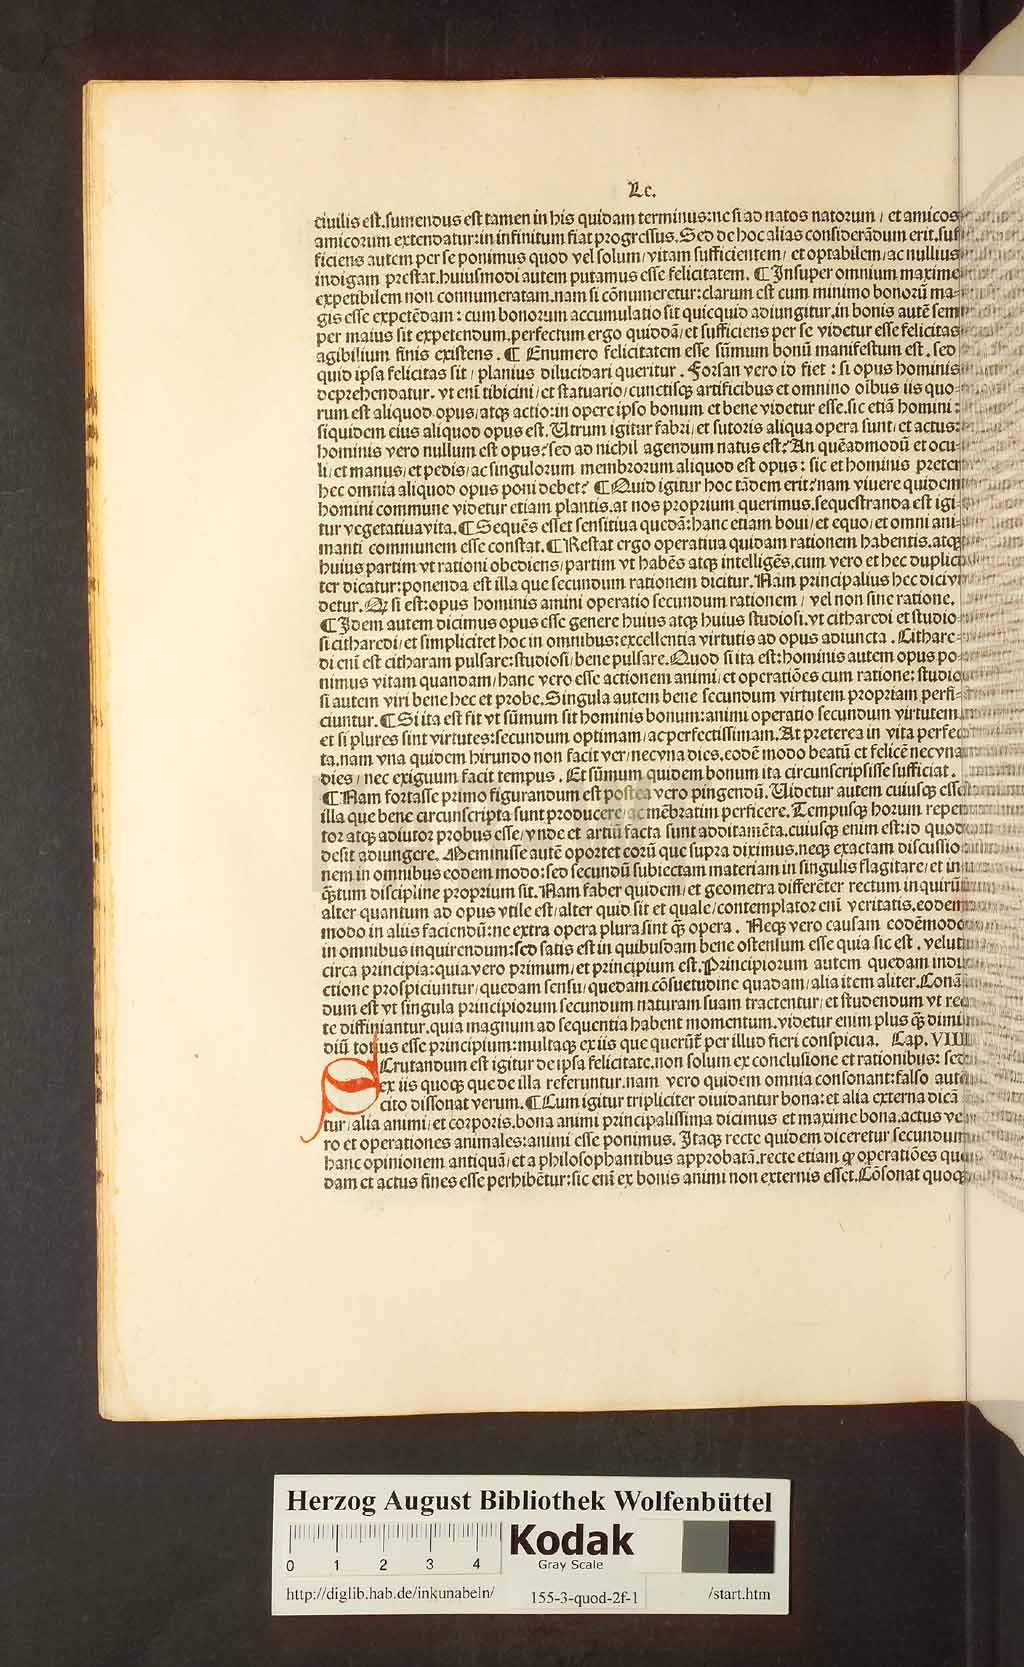 Lc.
ciuilis est.sumendus est tamen in his quidam terminus:ne si ad natos natorum / et amicos
amicorum extendatur:in infinitum fiat progressus.Sed de hoc alias considerādum erit.suf
ficiens autem per se ponimus quod vel solum/vitam sufficientem/ et optabilem/ac nullius
indigam prestat.huiusmodi autem putamus esse felicitatem. ¶Insuper omnium maxime
expetibilem non connumeratam.nam si cōnumeretur:clarum est cum minimo bonorū ma-
gis esse expetēdam : cum bonorum accumulatio sit quicquid adiungitur.in bonis autē semp
per maius sit expetendum.perfectum ergo quiddā/et sufficiens per se videtur esse felicitas
agibilium finis existens. ¶ Enumero felicitatem esse sūmum bonū manifestum est. sed
quid ipsa felicitas sit / planius dilucidari queritur . Forsan vero id fiet : si opus hominis
deprehendatur. vt enī tibicini/et statuario/cunctisqꝫ artificibus et omnino oībus iis quo-
rum est aliquod opus/atqꝫ actio:in opere ipso bonum et bene videtur esse.sic etiā homini :
siquidem eius aliquod opus est.Utrum igitur fabri/et sutoris aliqua opera sunt/et actus:
hominis vero nullum est opus?sed ad nichil agendum natus est?An quēadmodū et ocu-
li/et manus/et pedis/ac singulorum membrorum aliquod est opus : sic et hominis preter
hec omnia aliquod opus poni debet? ¶Quid igitur hoc tādem erit?nam viuere quidem
homini commune videtur etiam plantis.at nos proprium querimus.sequestranda est igi-
tur vegetatiua vita.¶Sequēs esset sensitiua quedā:hanc etiam boui/et equo/et omni ani-
manti communem esse constat.¶Restat ergo operatiua quidam rationem habentis.atqꝫ
huius partim vt rationi obediens/partim vt habēs atqꝫ intelligēs.cum vero et hec duplici
ter dicatur:ponenda est illa que secundum rationem dicitur.Nam principalius hec dici vi
detur.Qꝫ si est:opus hominis amini operatio secundum rationem / vel non sine ratione.
¶Idem autem dicimus opus esse genere huius atqꝫ huius studiosi.vt citharedi et studio
si citharedi/et simplicitet hoc in omnibus:excellentia virtutis ad opus adiuncta . Cithare-
di enī est citharam pulsare:studiosi/bene pulsare.Quod si ita est:hominis autem opus po-
nimus vitam quandam/hanc vero esse actionem animi/et operatiōes cum ratione: studio
si autem viri bene hec et probe.Singula autem bene secundum virtutem propriam perfi-
ciuntur.¶Si ita est fit vt sūmum sit hominis bonum:animi operatio secundum virtutem
et si plures sint virtutes:secundum optimam/ac perfectissimam.At preterea in vita perfec
ta.nam vna quidem hirundo non facit ver/nec vna dies.eodē modo beatū et felicē nec vna
dies / nec exiguum facit tempus . Et sūmum quidem bonum ita circunscripsisse sufficiat .
¶Nam fortasse primo figurandum est postea vero pingendū.Uidetur autem cuiusqꝫ esse
illa que bene circunscripta sunt producere/ac mēbratim perficere.Tempusqꝫ horum reper
tor atqꝫ adiutor probus esse/vnde et artiū facta sunt additamēta.cuiusqꝫ enim est:id quod
desit adiungere. Meminisse autē oportet eorū que supra diximus.neqꝫ exactam discussio
nem in omnibus eodem modo:sed secundū subiectam materiam in singulis flagitare/et in
qꝫtum discipline proprium sit.Nam faber quidem/et geometra differēter rectum inquirūt
alter quantum ad opus vtile est/alter quid sit et quale/contemplator enī veritatis.eodem
modo in aliis faciendū:ne extra opera plura sint qꝫ opera . Neqꝫ vero causam eodē modo
in omnibus inquirendum:sed satis est in quibusdam bene ostensum esse quia sic est . velut
circa principia:quia vero primum/et principium est.Principiorum autem quedam indu
ctione prospiciuntur/quedam sensu/quedam cōsuetudine quadam/alia item aliter.Conā
dum est vt singula principiorum secundum naturam suam tractentur/et studendum vt rec
te diffiniantur.quia magnum ad sequentia habent momentum.videtur enim plus qꝫ dimi
diū totius esse principium:multaqꝫ ex iis que querūt᷑ per illud fieri conspicua. Cap. VIII
SCrutandum est igitur de ipsa felicitate.non solum ex conclusione et rationibus: sed
ex iis quoqꝫ que de illa referuntur.nam vero quidem omnia consonant:falso autē
cito dissonat verum.¶Cum igitur tripliciter diuidantur bona:et alia externa dicā
tur/alia animi/et corporis.bona animi principalissima dicimus et maxime bona.actus ve
ro et operationes animales:animi esse ponimus. Itaqꝫ recte quidem diceretur secundum
hanc opinionem antiquā/et a philosophantibus approbatā.recte etiam ꝙ operatiōes que
dam et actus fines esse perhibētur:sic enī ex bonis animi non externis esset.Cōsonat quoqꝫ
Herzog August Bibliothek Wolfenbüttel
0 1 2 3 4
Kodak
Gray Scale
http://diglib.hab.de/inkunabeln/ 155-3-quod-2f-1 /start.htm